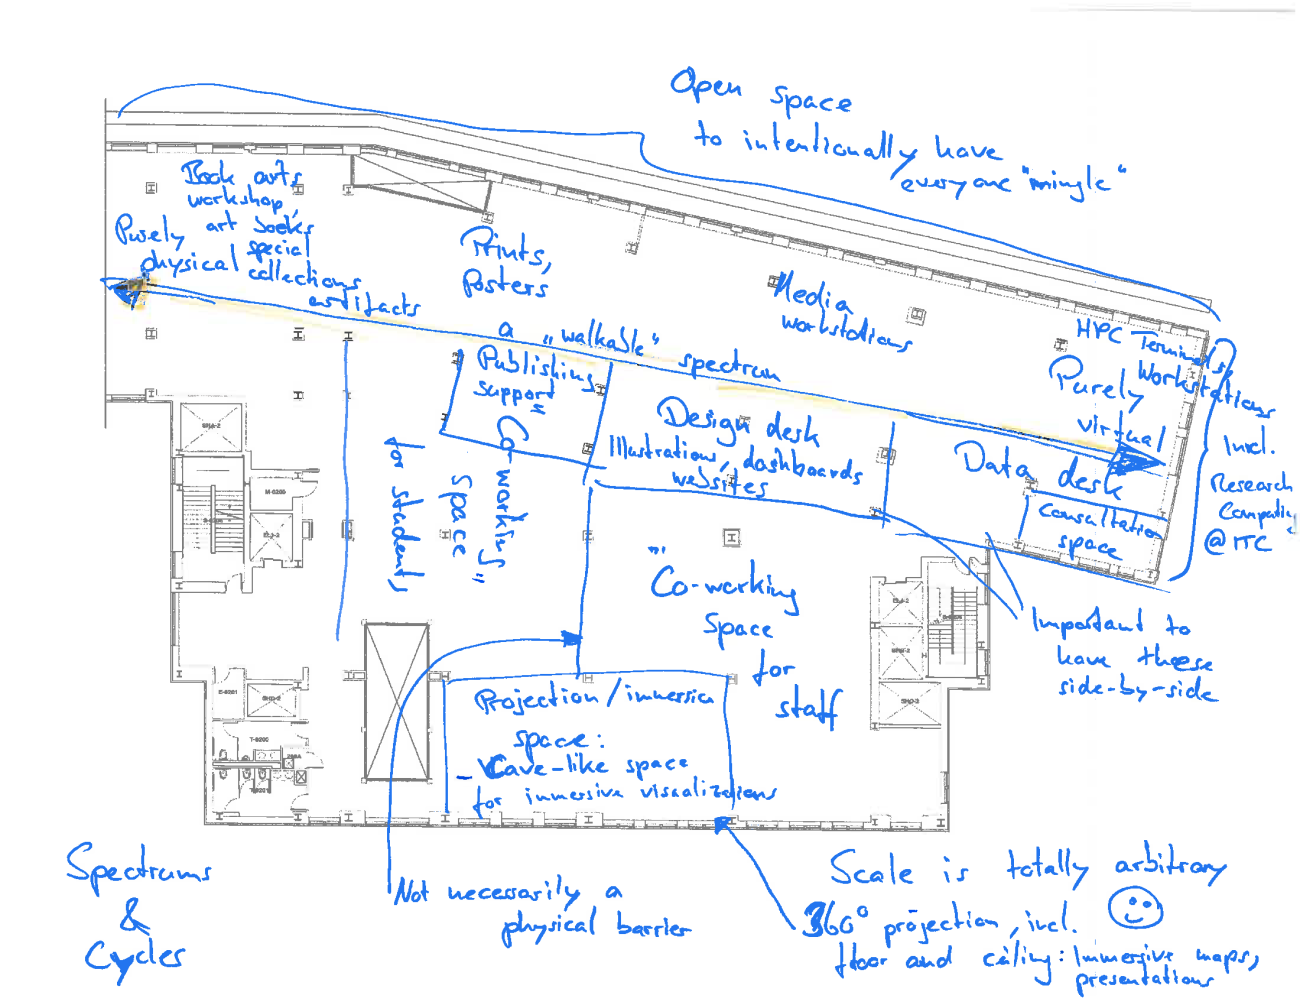 Open space
to intentionally have
everyone "mingle"
Book arts
workshop,
art books
special
collections
artifacts
Purely
physical
Prints,
Posters
Media
workstations
HPC Terminals,
Workstations
Purely
virtual
incl.
Research
Computing
@ ITC
a "walkable" spectrum
Publishing
support
Design desk
Illustrations, dashboards
websites
Data desk
consultation
space
Co-working
space
for students
"
Co-working
Space
for
staff
Important to
have these
side-by-side
Projection/immersion
space:
- Cave-like space
for immersive visualizations
Not necessarily a
physical barrier
Spectrums
&
Cycles
Scale is totally arbitrary
360° projection, incl.
floor and ceiling: Immersive maps,
presentations
M-0200
E-0201
T-0200